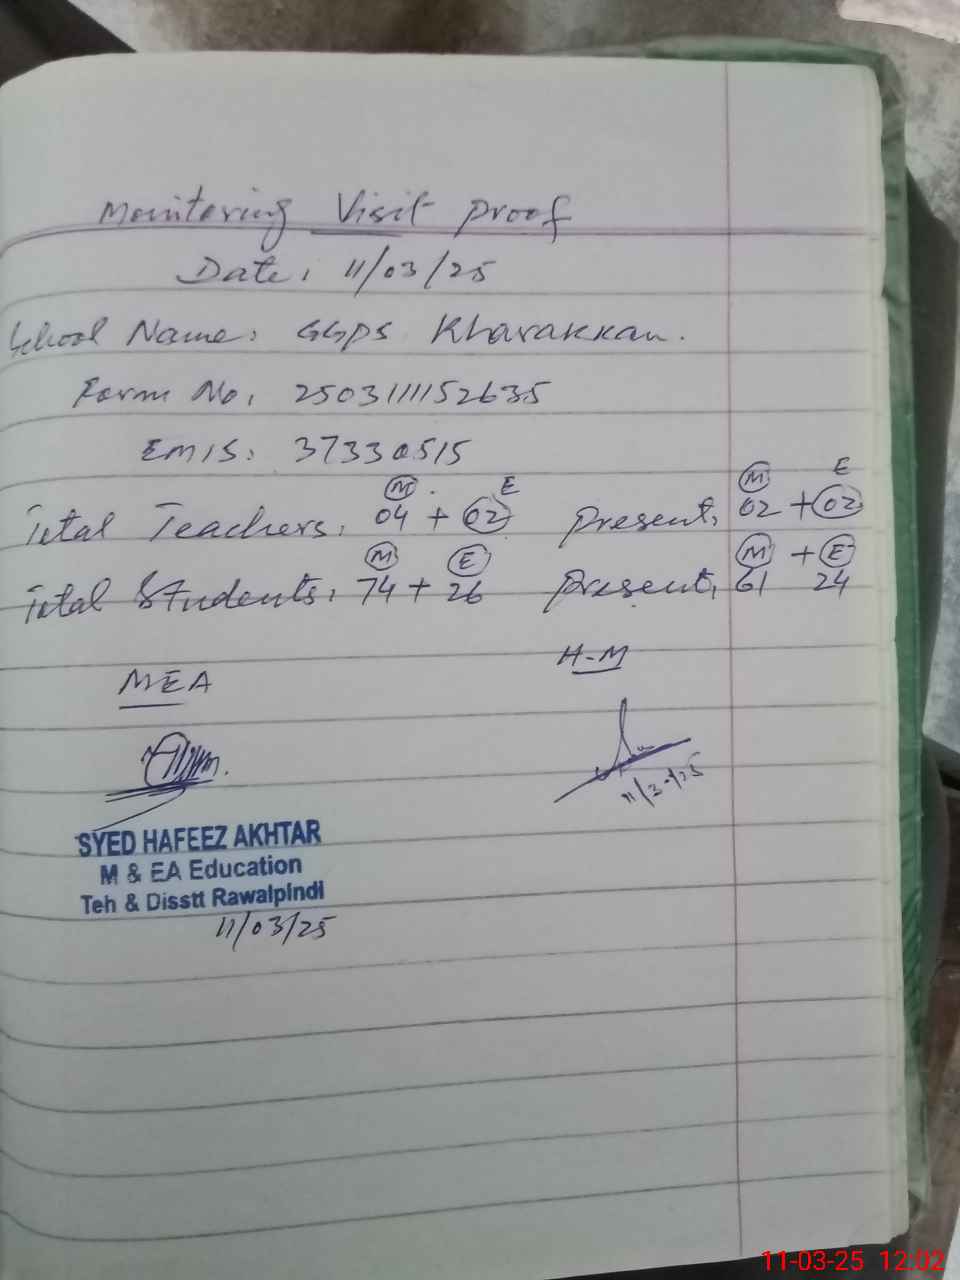 Monitoring Visit Proof
Date: 11/03/25
School Name: GGPS Kharakkan.
Form No. 2503111152635
EMIS: 37330515
M E M E
Total Teachers: 04 + 02 Present: 02 + 02
M E M + E
Total Students: 74 + 26 Present: 61 24
MEA H-M
11/3-/25
SYED HAFEEZ AKHTAR
M & EA Education
Teh & Disstt Rawalpindi
11/03/25
11-03-25 12:02